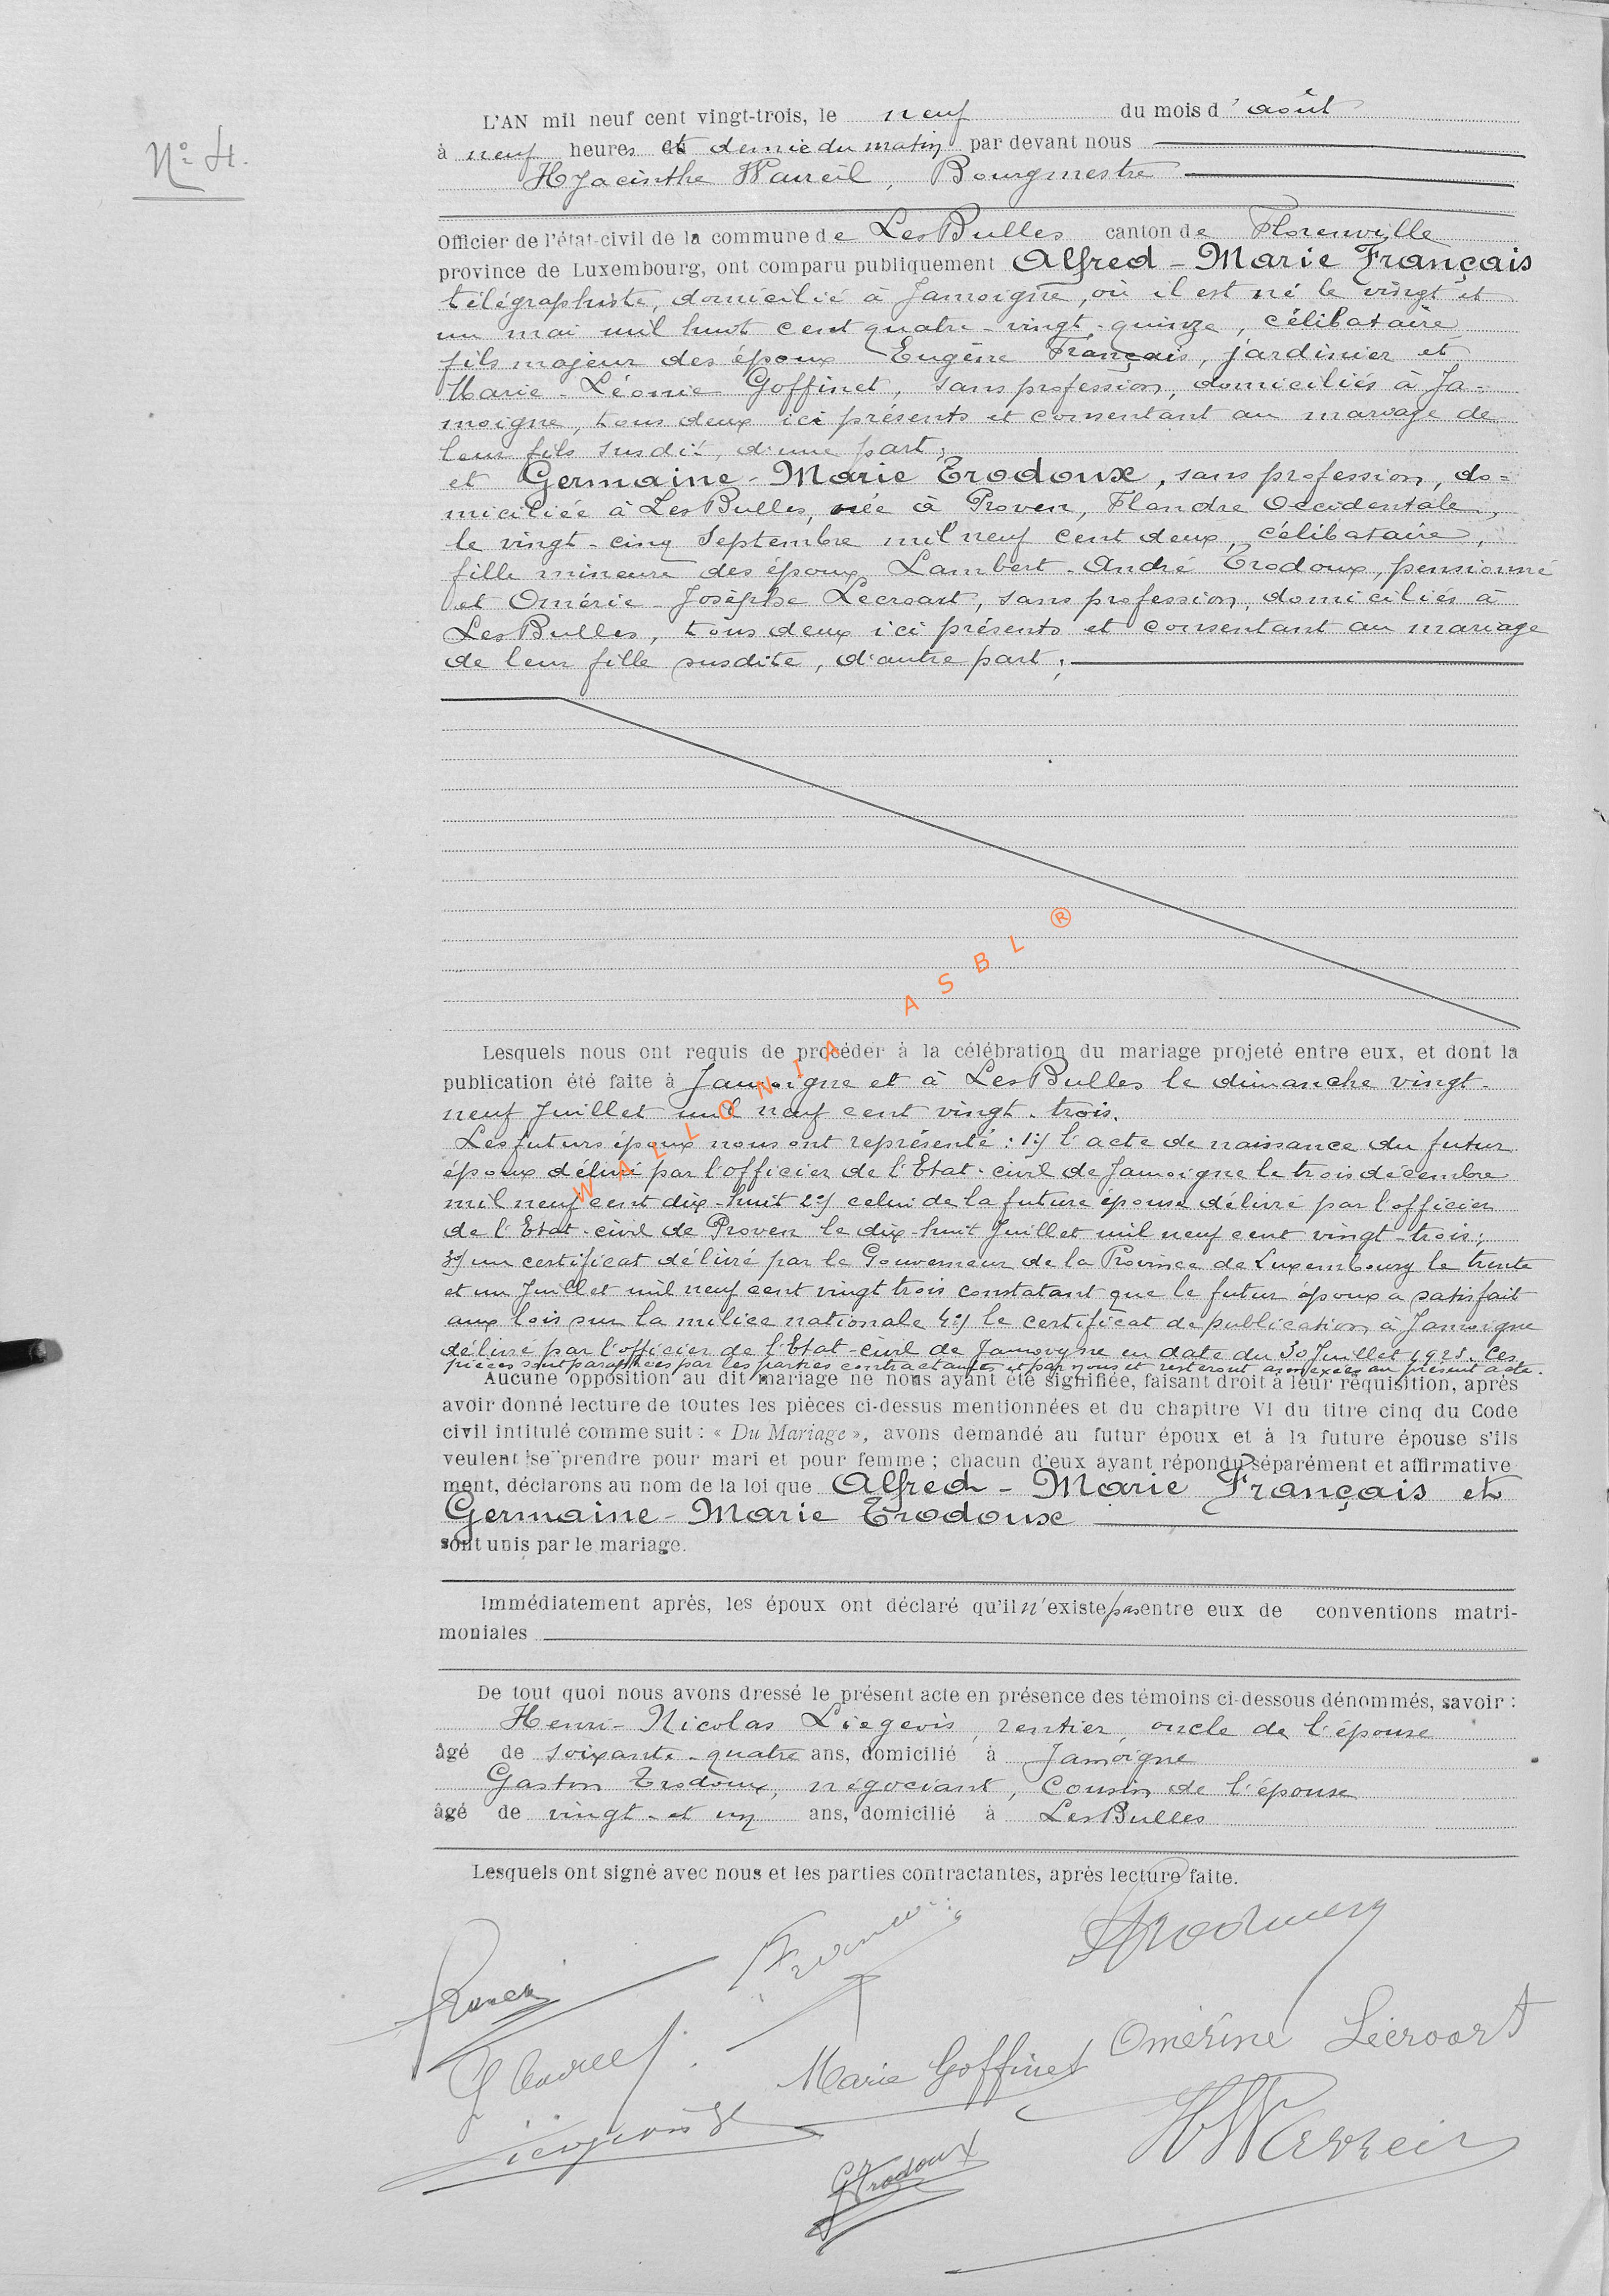 N° 4.
L'AN mil neuf cent vingt-trois, le neuf du mois d'août
à neuf heures et demie du matin par devant nous
Hyacinthe Waxreil, Bourgmestre
Officier de l'état-civil de la commune de Les Bulles canton de Florenville
province de Luxembourg, ont comparu publiquement Alfred-Marie Français
télégraphiste, domicilié à Jamoigne, où il est né le vingt et
un mai mil huit cent quatre-vingt-quinze, célibataire
fils majeur des époux Eugène Français, jardinier et
Marie-Léonie Goffinet, sans profession, domiciliés à Ja=
moigne, tous deux ici présents et consentant au mariage de
leur fils susdit, d'une part,
et Germaine-Marie Trodoux, sans profession, do=
miciliée à Les Bulles, née à Proven, Flandre Occidentale,
le vingt-cinq Septembre mil neuf cent deux, célibataire,
fille mineure des époux Lambert-André Trodoux, pensionné
et Omérie-Josèphe Lecroart, sans profession, domiciliés à
Les Bulles, tous deux ici présents et consentant au mariage
de leur fille susdite, d'autre part;
Lesquels nous ont requis de procéder à la célébration du mariage projeté entre eux, et dont la
publication été faite à Jamoigne et à Les Bulles le dimanche vingt-
neuf Juillet mil neuf cent vingt-trois.
Les futurs époux nous ont représenté : 1°/ l'acte de naissance du futur
époux délivré par l'officier de l'Etat-civil de Jamoigne le trois décembre
mil neuf cent dix-huit 2°/ celui de la future épouse délivré par l'officier
de l'Etat-civil de Proven le dix-huit Juillet mil neuf cent vingt-trois;
3°/ un certificat délivré par le Gouverneur de la Province de Luxembourg le trente
et un Juillet mil neuf cent vingt trois constatant que le futur époux a satisfait
aux lois sur la milice nationale 4°/ le certificat de publication à Jamoigne
délivré par l'officier de l'Etat-civil de Jamoigne en date du 30 Juillet 1923. Ces
pièces sont paraphées par les parties contractantes et par nous et resteront annexées au présent acte.
Aucune opposition au dit mariage ne nous ayant été signifiée, faisant droit à leur réquisition, après
avoir donné lecture de toutes les pièces ci-dessus mentionnées et du chapitre VI du titre cinq du Code
civil intitulé comme suit : « Du Mariage », avons demandé au futur époux et à la future épouse s'ils
veulent se prendre pour mari et pour femme ; chacun d'eux ayant répondu séparément et affirmative
ment, déclarons au nom de la loi que Alfred-Marie Français et
Germaine-Marie Trodoux
sont unis par le mariage.
Immédiatement après, les époux ont déclaré qu'il n'existe pas entre eux de conventions matri-
moniales
De tout quoi nous avons dressé le présent acte en présence des témoins ci-dessous dénommés, savoir :
Henri-Nicolas Liegeois, rentier, oncle de l'épouse
âgé de soixante-quatre ans, domicilié à Jamoigne
Gaston Trodoux, négociant, cousin de l'épouse
âgé de vingt-et un ans, domicilié à Les Bulles
Lesquels ont signé avec nous et les parties contractantes, après lecture faite.
Marie Goffinet
Omérine Lecroart
GTrodoux
WALLONIA ASBL ®